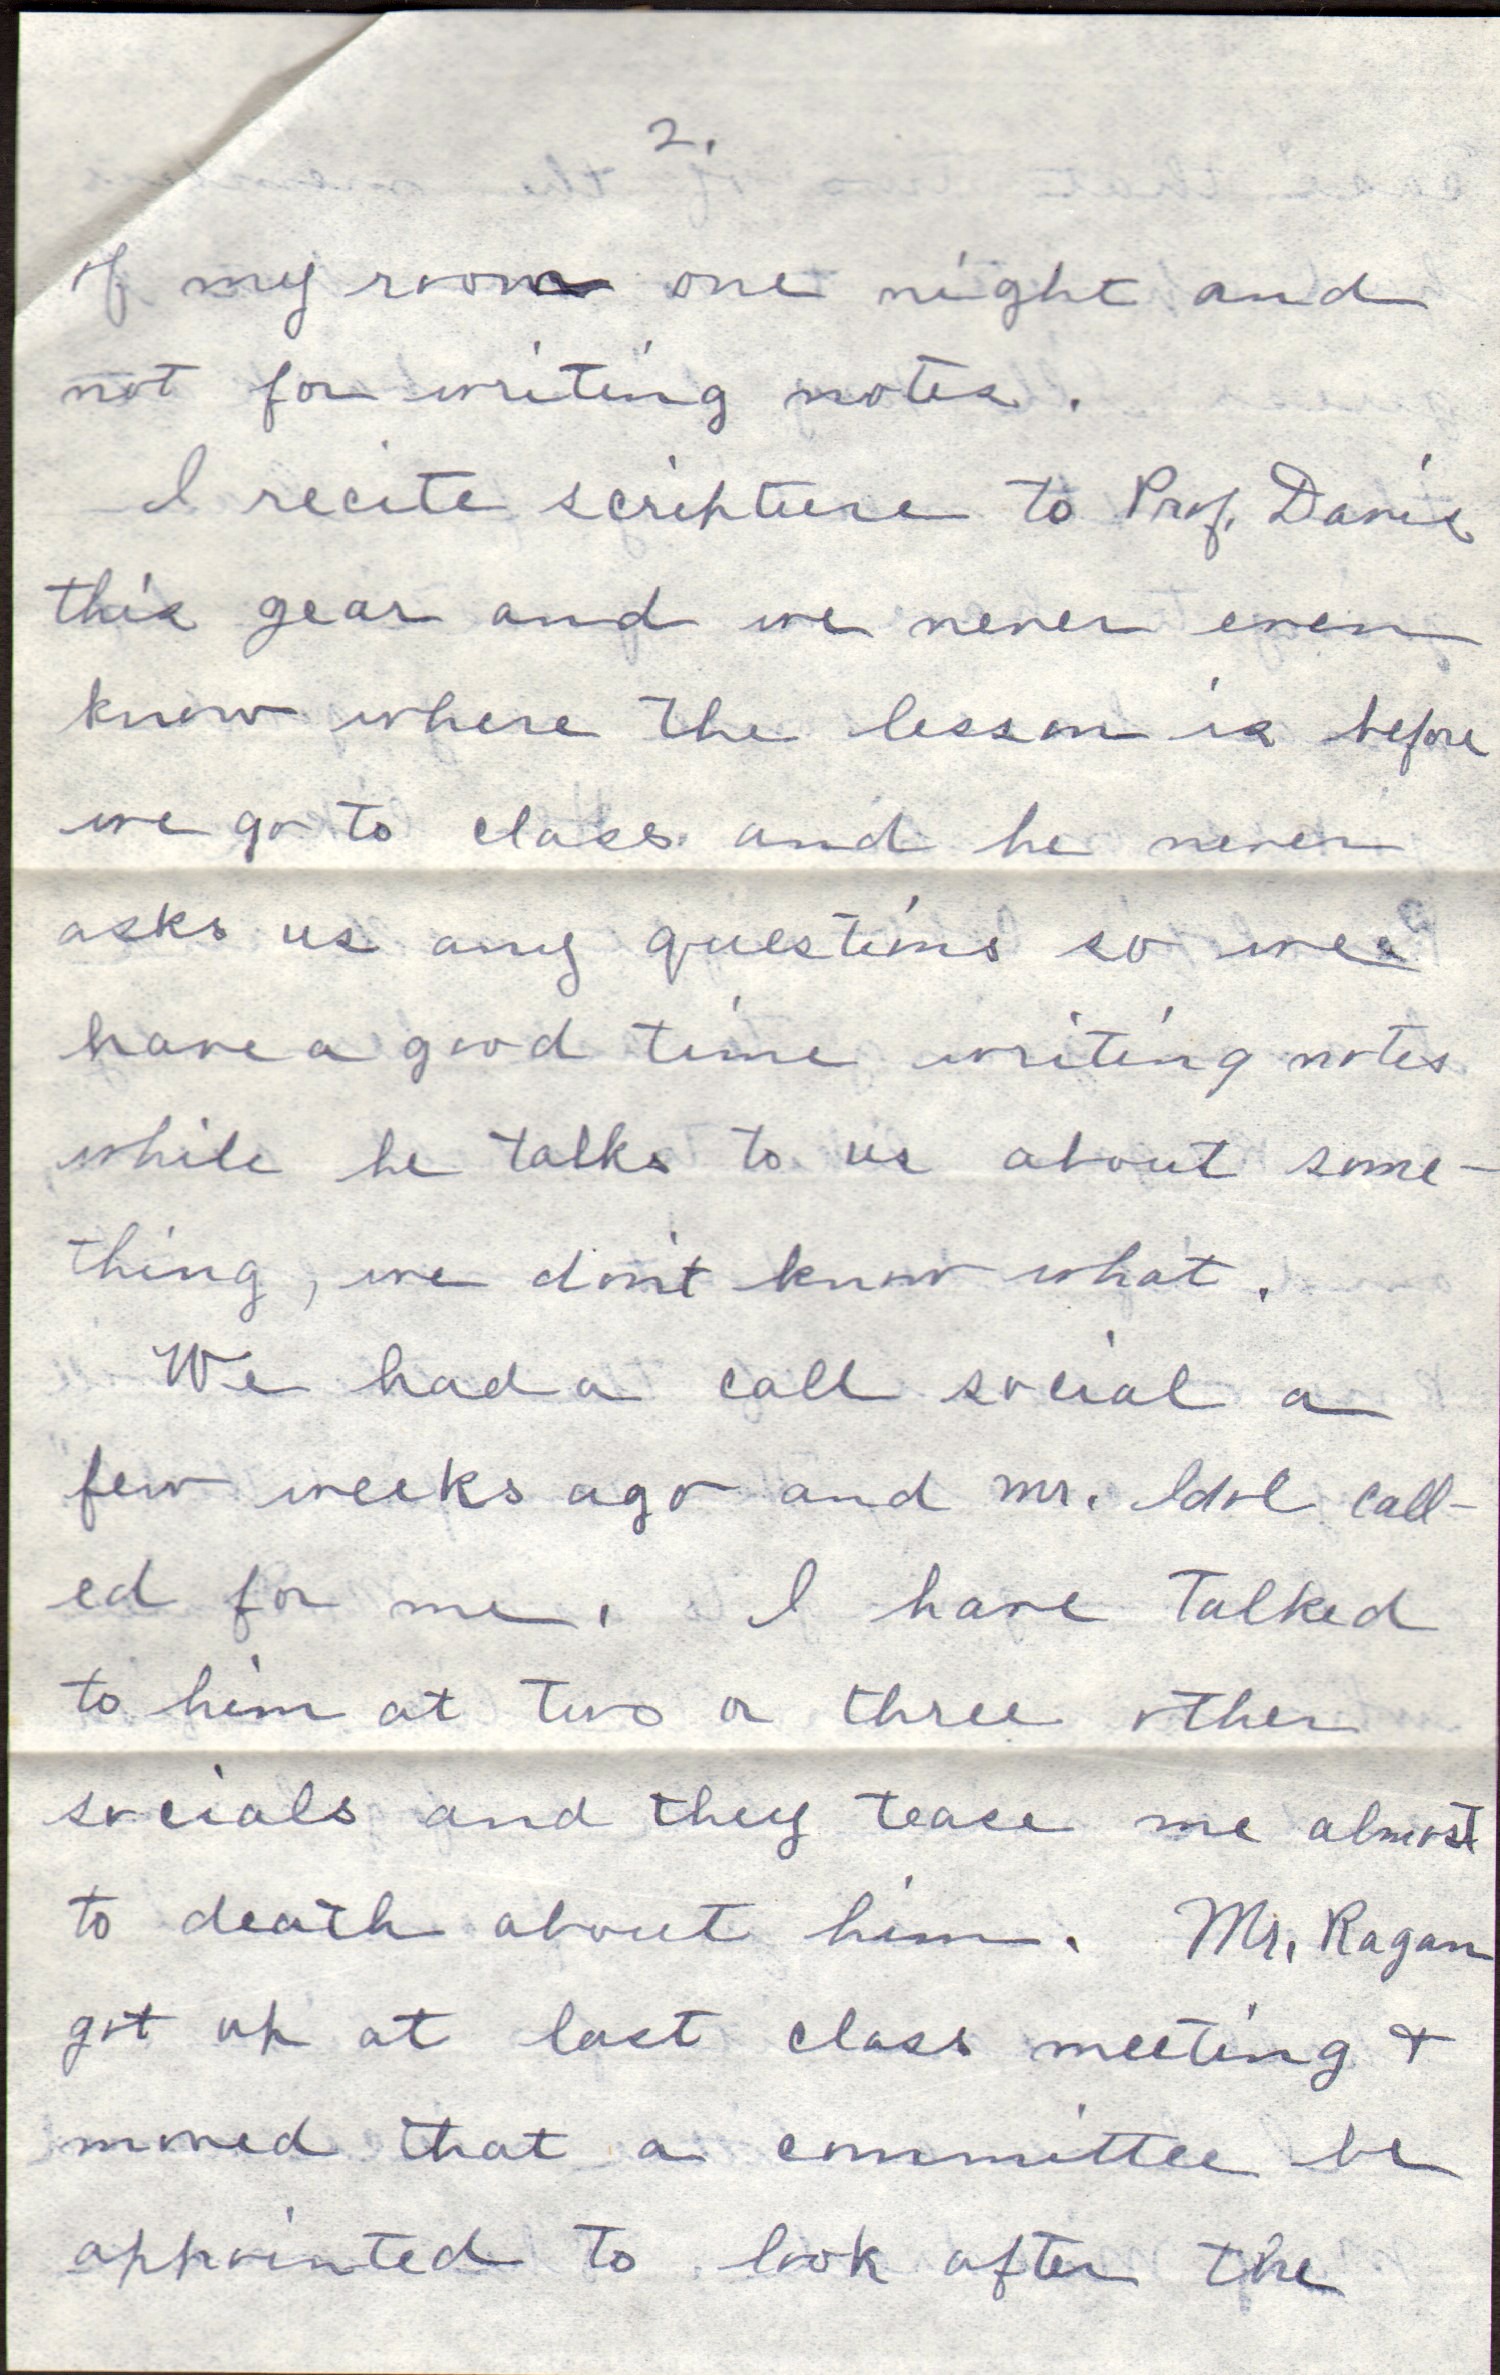 2.
of my room one night and
not for writing notes.
I recite scripture to Prof. Davis
this year and we never even
know where the lesson is before
we go to class and he never
asks us any questions so we
have a good time writing notes
while he talks to us about some-
thing, we don't know what.
We had a call social a
few weeks ago and Mr. Idol call-
ed for me. I have talked
to him at two or three other
socials and they tease me almost
to death about him. Mr. Ragan
got up at last class meeting &
moved that a committee be
appointed to look after the